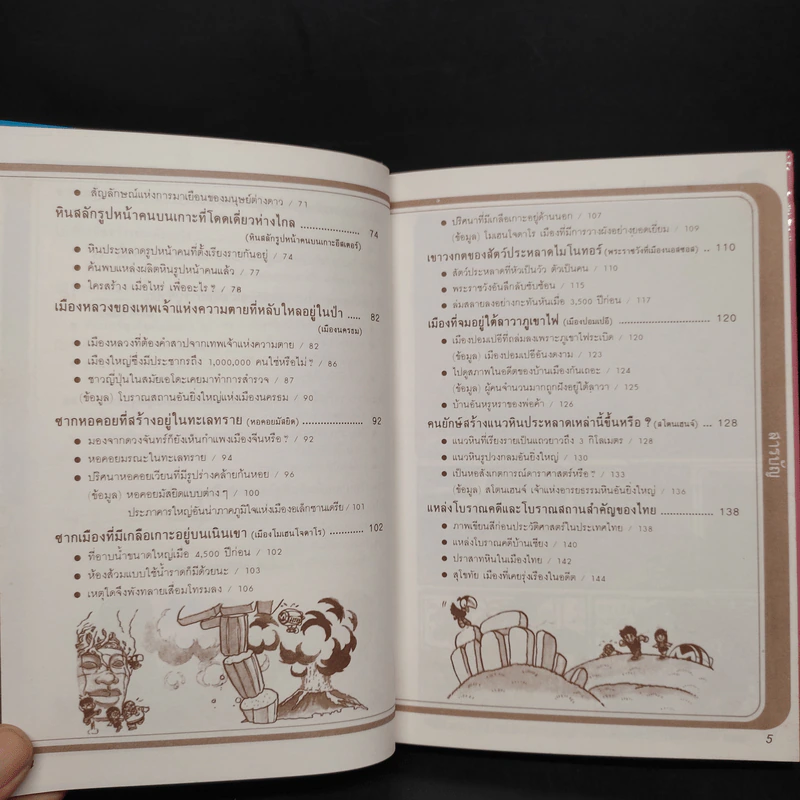 ● สัญลักษณ์แห่งการมาเยือนของมนุษย์ต่างดาว / 71
หินสลักรูปหน้าคนบนเกาะที่โดดเดี่ยวห่างไกล .................... 74
(หินสลักรูปหน้าคนบนเกาะอีสเตอร์)
● หินประหลาดรูปหน้าคนที่ตั้งเรียงรายกันอยู่ / 74
● ค้นพบแหล่งผลิตหินรูปหน้าคนแล้ว / 77
● ใครสร้าง เมื่อไหร่ เพื่ออะไร ? / 78
เมืองหลวงของเทพเจ้าแห่งความตายที่หลับใหลอยู่ในป่า ........ 82
(เมืองนครธม)
● เมืองหลวงที่ต้องคำสาปจากเทพเจ้าแห่งความตาย / 82
● เมืองใหญ่ซึ่งมีประชากรถึง 1,000,000 คนใช่หรือไม่ ? / 86
● ชาวญี่ปุ่นในสมัยเอโดะเคยมาทำการสำรวจ / 87
(ข้อมูล) โบราณสถานอันยิ่งใหญ่แห่งเมืองนครธม / 90
ซากหอคอยที่สร้างอยู่ในทะเลทราย (หอคอยมัสยิด) ................ 92
● มองจากดวงจันทร์ก็ยังเห็นกำแพงเมืองจีนหรือ ? / 92
● หอคอยมรณะในทะเลทราย / 94
● ปริศนาหอคอยเวียนที่มีรูปร่างคล้ายก้นหอย / 96
(ข้อมูล) หอคอยมัสยิดแบบต่าง ๆ / 100
ประภาคารใหญ่อันน่าภาคภูมิใจแห่งเมืองอเล็กซานเดรีย / 101
ซากเมืองที่มีเกลือเกาะอยู่บนเนินเขา (เมืองโมเฮนโจดาโร) ........ 102
● ที่อาบน้ำขนาดใหญ่เมื่อ 4,500 ปีก่อน / 102
● ห้องส้วมแบบใช้น้ำราดก็มีด้วยนะ / 103
● เหตุใดจึงพังทลายเสื่อมโทรมลง / 106
● ปริศนาที่มีเกลือเกาะอยู่ด้านนอก / 107
(ข้อมูล) โมเฮนโจดาโร เมืองที่มีการวางผังอย่างยอดเยี่ยม / 109
เขาวงกตของสัตว์ประหลาดไมโนทอร์ (พระราชวังที่เมืองนอสซอส) .. 110
● สัตว์ประหลาดที่หัวเป็นวัว ตัวเป็นคน / 110
● พระราชวังอันลึกลับซับซ้อน / 115
● ล่มสลายลงอย่างกะทันหันเมื่อ 3,500 ปีก่อน / 117
เมืองที่จมอยู่ใต้ลาวาภูเขาไฟ (เมืองปอมเปอี) ..................... 120
● เมืองปอมเปอีที่ถล่มลงเพราะภูเขาไฟระเบิด / 120
(ข้อมูล) เมืองปอมเปอีอันงดงาม / 123
● ไปดูสภาพในอดีตของบ้านเมืองกันเถอะ / 124
(ข้อมูล) ผู้คนจำนวนมากถูกฝังอยู่ใต้ลาวา / 125
● บ้านอันหรูหราของพ่อค้า / 126
คนยักษ์สร้างแนวหินประหลาดเหล่านี้ขึ้นหรือ ? (สโตนเฮนจ์) ... 128
● แนวหินที่เรียงรายเป็นแถวยาวถึง 3 กิโลเมตร / 128
● แนวหินรูปวงกลมอันยิ่งใหญ่ / 130
● เป็นหอสังเกตการณ์ดาราศาสตร์หรือ ? / 133
(ข้อมูล) สโตนเฮนจ์ เจ้าแห่งอารยธรรมหินอันยิ่งใหญ่ / 136
แหล่งโบราณคดีและโบราณสถานสำคัญของไทย ............ 138
● ภาพเขียนสีก่อนประวัติศาสตร์ในประเทศไทย / 138
● แหล่งโบราณคดีบ้านเชียง / 140
● ปราสาทหินในเมืองไทย / 142
● สุโขทัย เมืองที่เคยรุ่งเรืองในอดีต / 144
สารบัญ
5